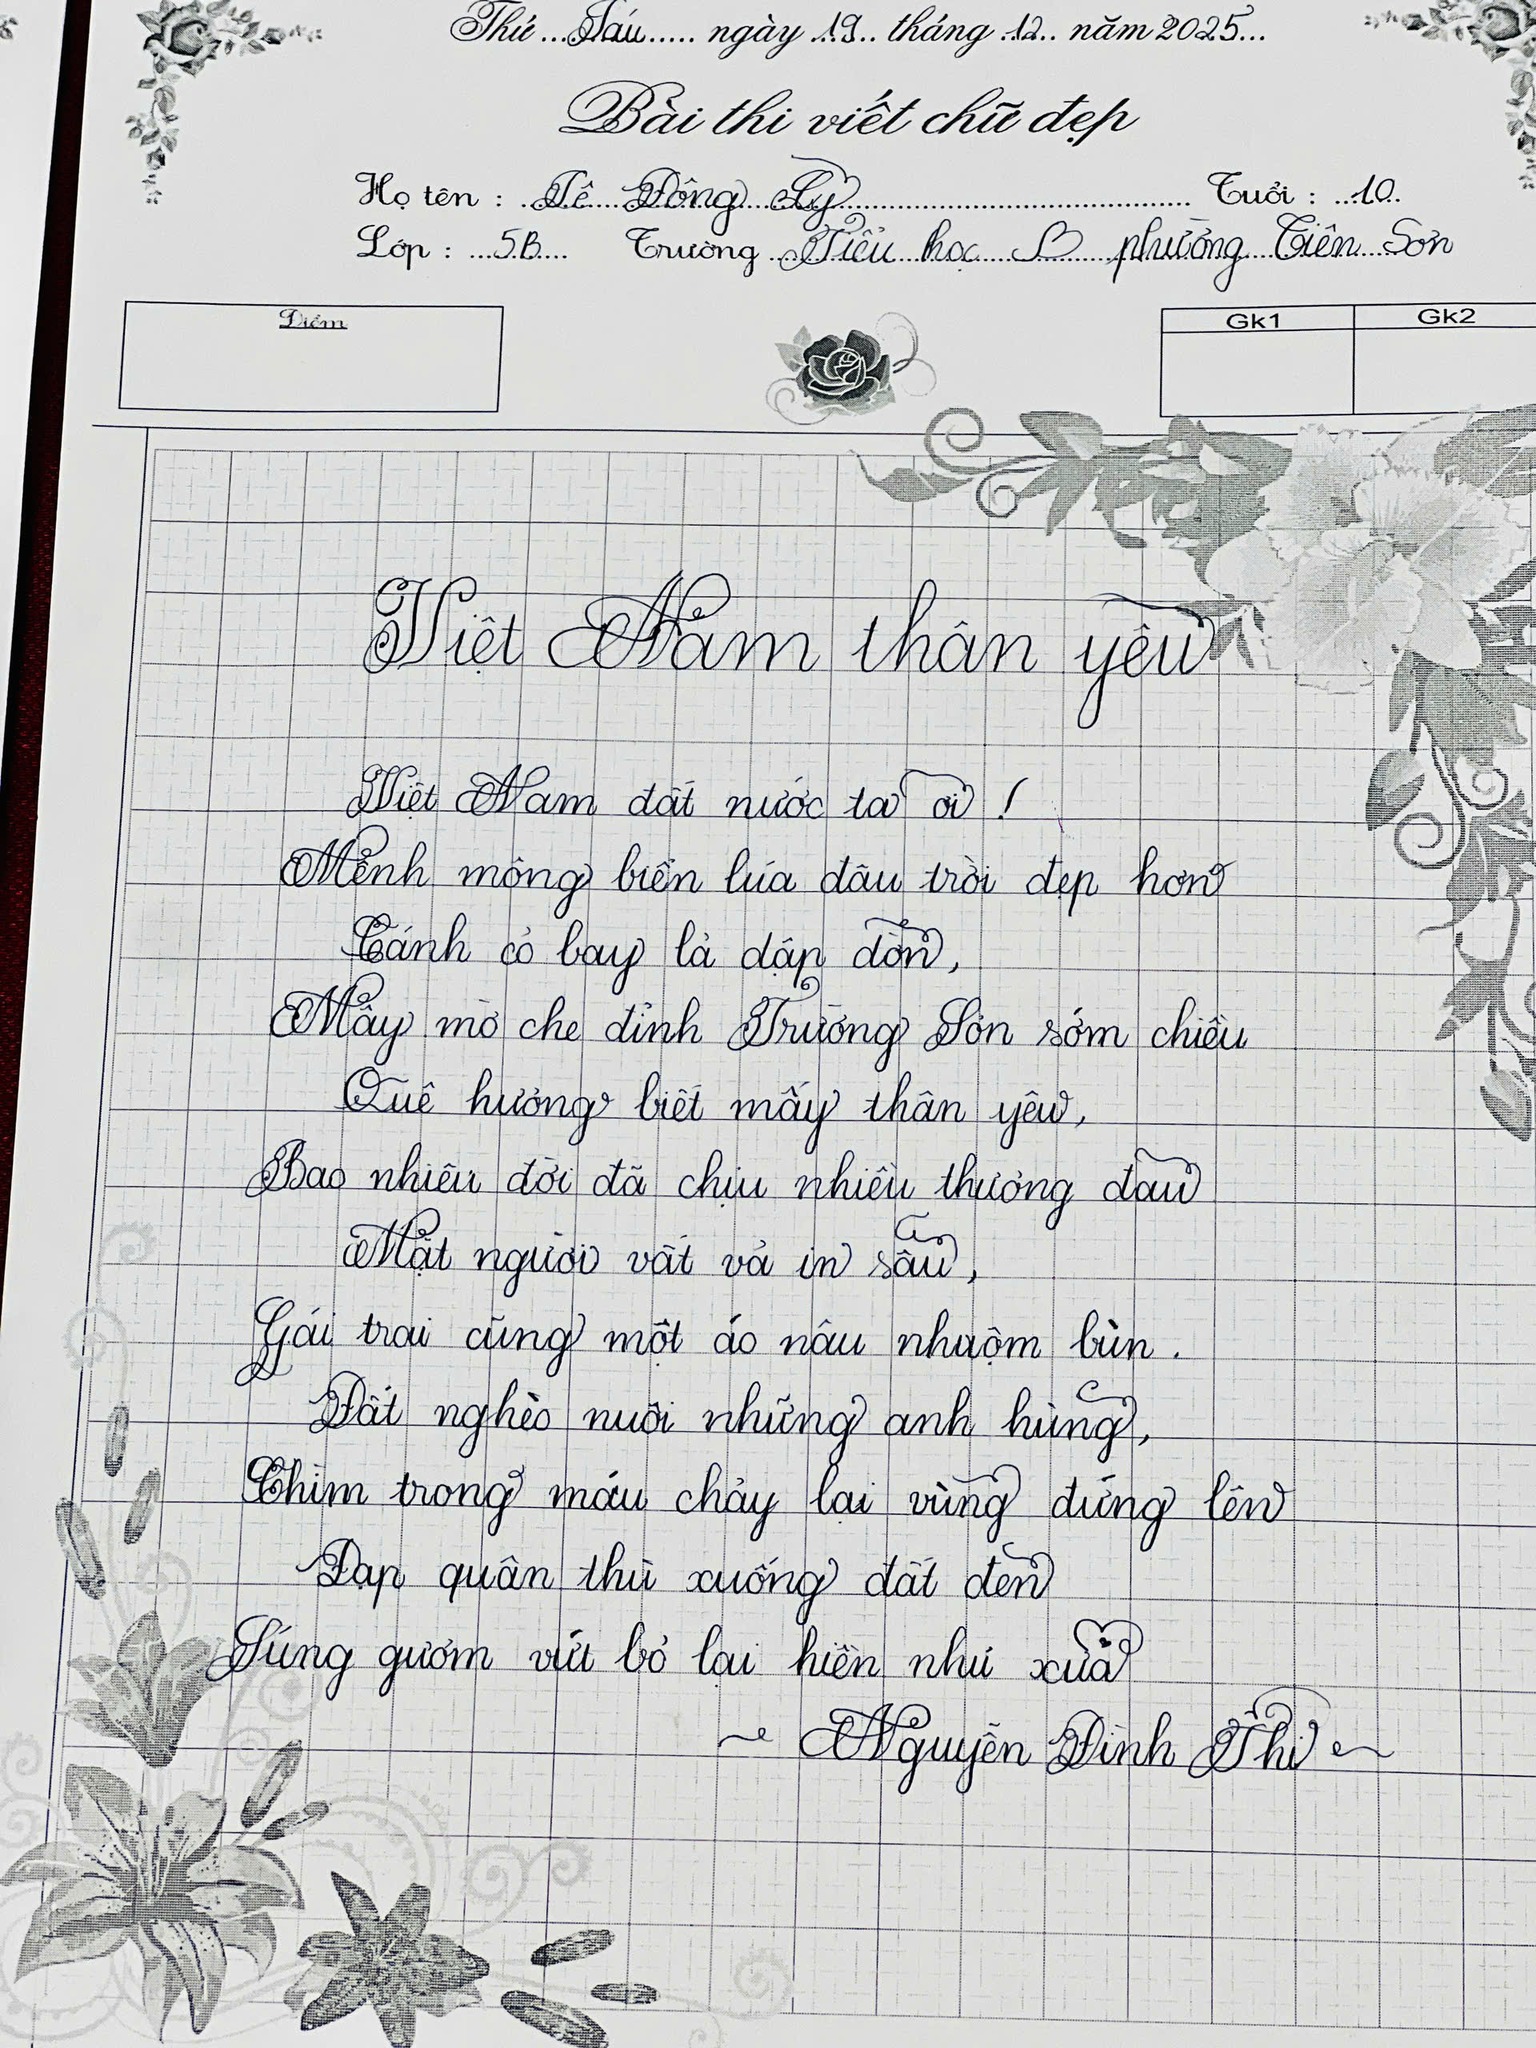 Thứ ...Sáu..... ngày .19.. tháng .12.. năm 2025...
Bài thi viết chữ đẹp
Họ tên : Lê Đông Ly Tuổi : ...10..
Lớp : ...5B.... Trường Tiểu học B phường Tiên Sơn
Điểm
Gk1 Gk2
Việt Nam thân yêu
Việt Nam đất nước ta ơi !
Mênh mông biển lúa đâu trời đẹp hơn
Cánh cò bay lả dập dờn,
Mây mờ che đỉnh Trường Sơn sớm chiều
Quê hương biết mấy thân yêu,
Bao nhiêu đời đã chịu nhiều thương đau
Mặt người vất vả in sâu,
Gái trai cũng một áo nâu nhuộm bùn.
Đất nghèo nuôi những anh hùng,
Chìm trong máu chảy lại vùng đứng lên
Đạp quân thù xuống đất đen
Súng gươm vứt bỏ lại hiền như xưa
~ Nguyễn Đình Thi ~